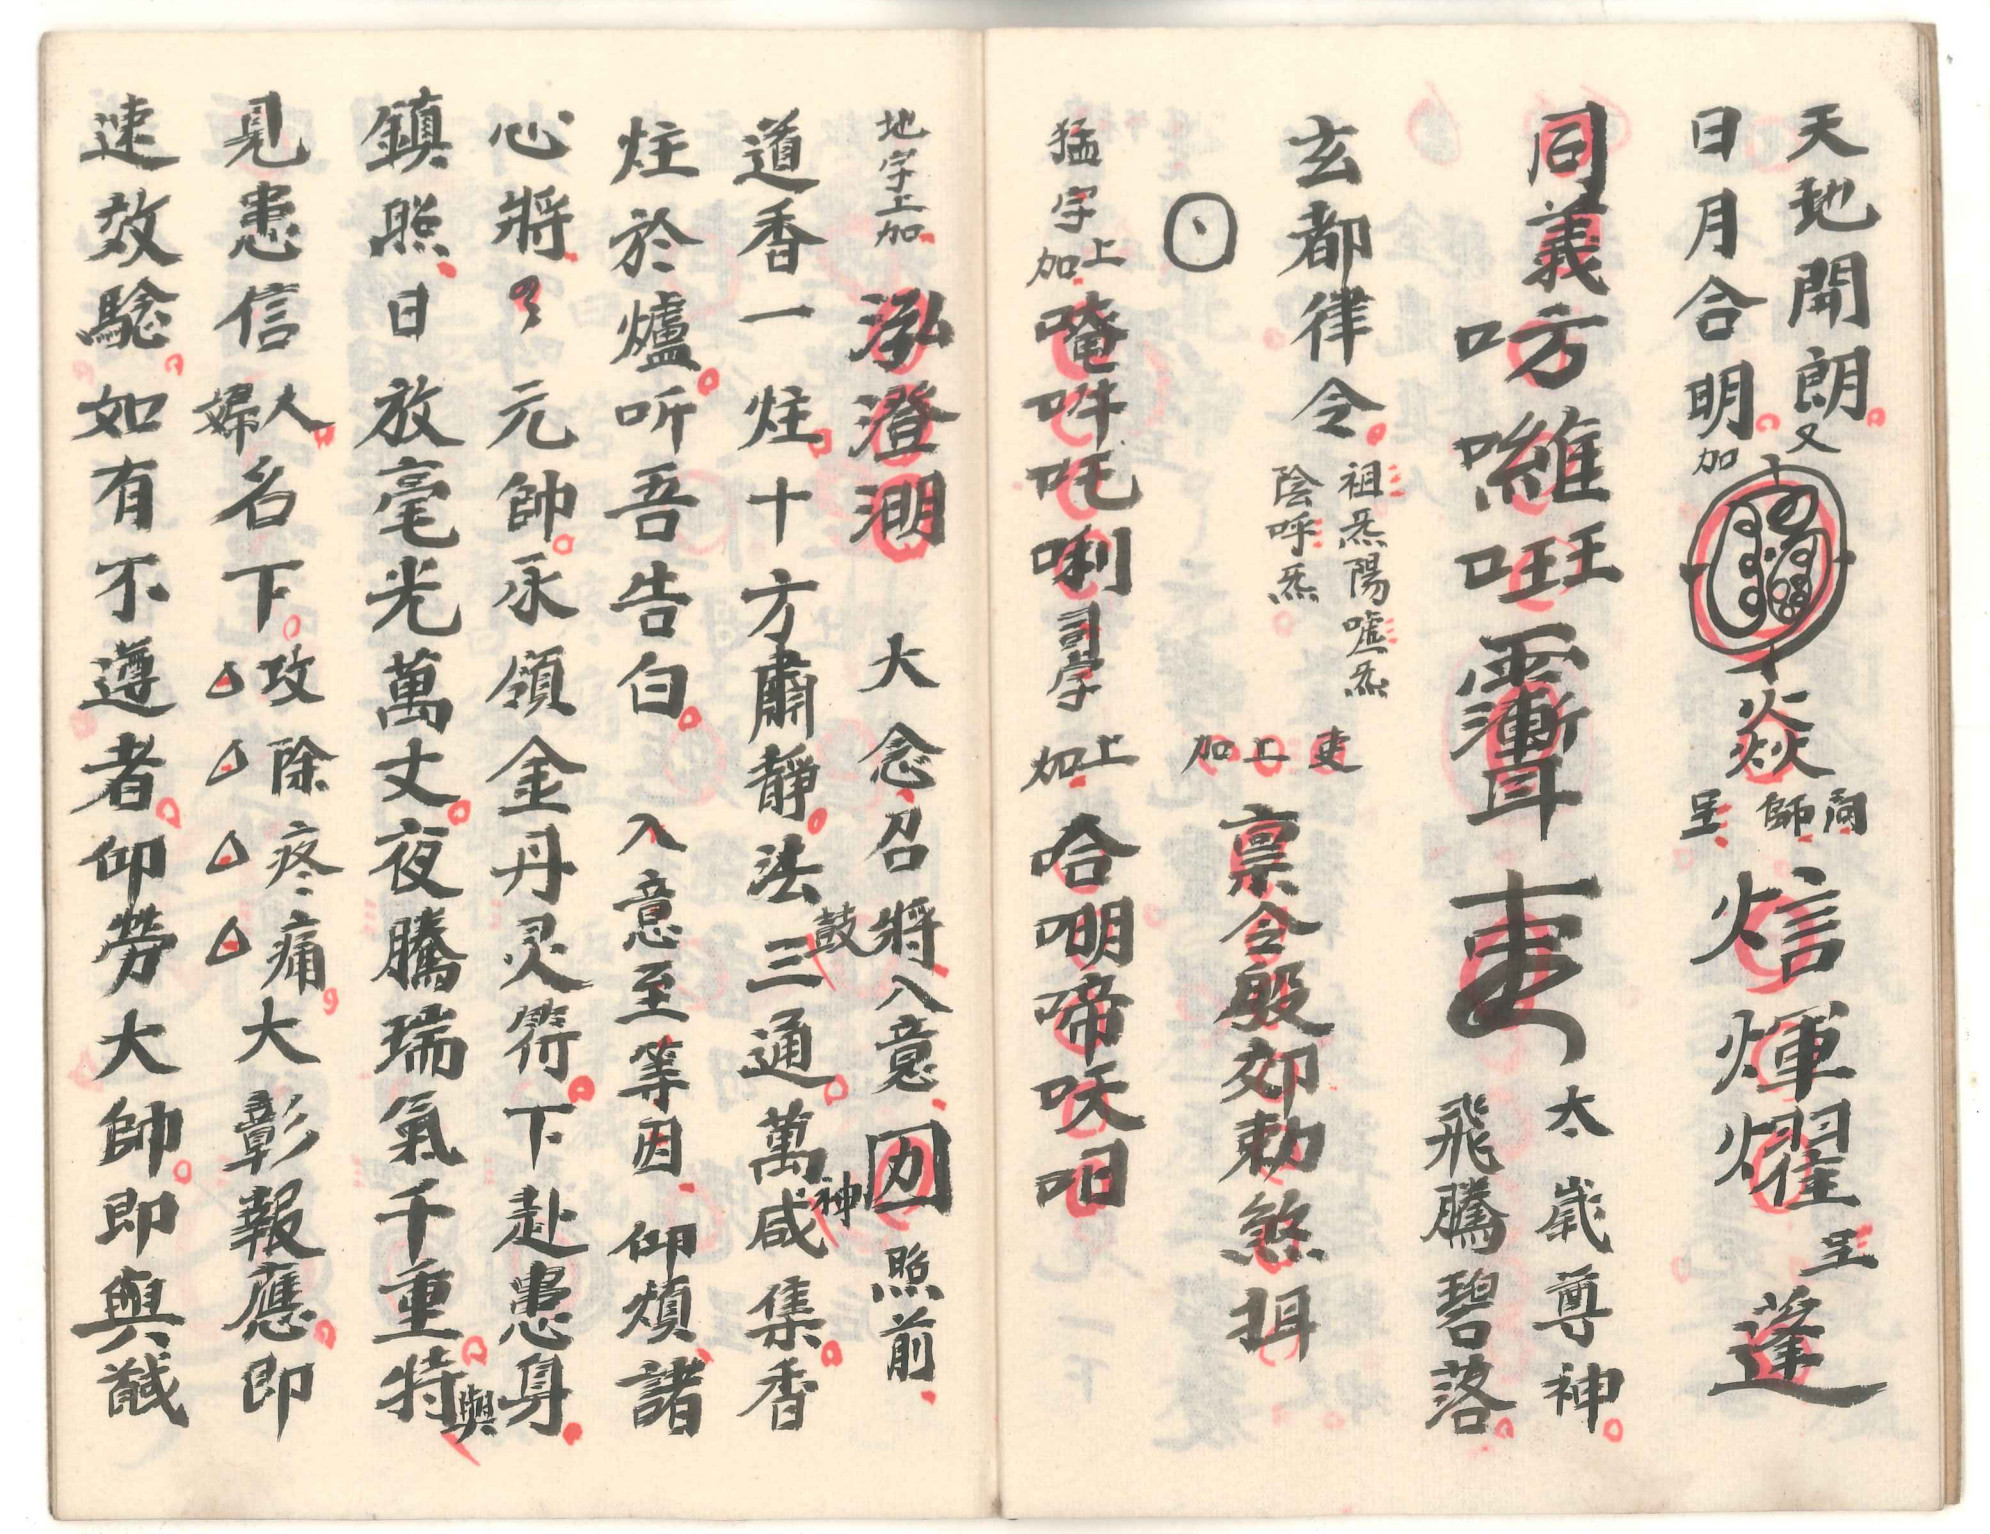 天地開朗又
日月合明加
焱
閫師呈
𤈠煇燿
呈
蓬
同義㕫囉
太歲尊神
飛騰碧落
玄都律令
祖炁陽噓炁
陰呼炁
吏上加
禀令殷郊勅煞
猛字上加
唵吽吒唎
司字上加
哈㗂啼呋
地字上加
泓澄
大念召將入意
照前
道香一炷十方肅靜法鼓三通萬神咸集香
炷於爐听吾告白入意至等因仰煩諸
心將々元帥承領金丹灵符下赴患身
鎮照日放毫光萬丈夜騰瑞氣千重特與
見患信人婦名下攻除疼痛大彰報應即
速效驗如有不遵者仰勞大帥即與馘